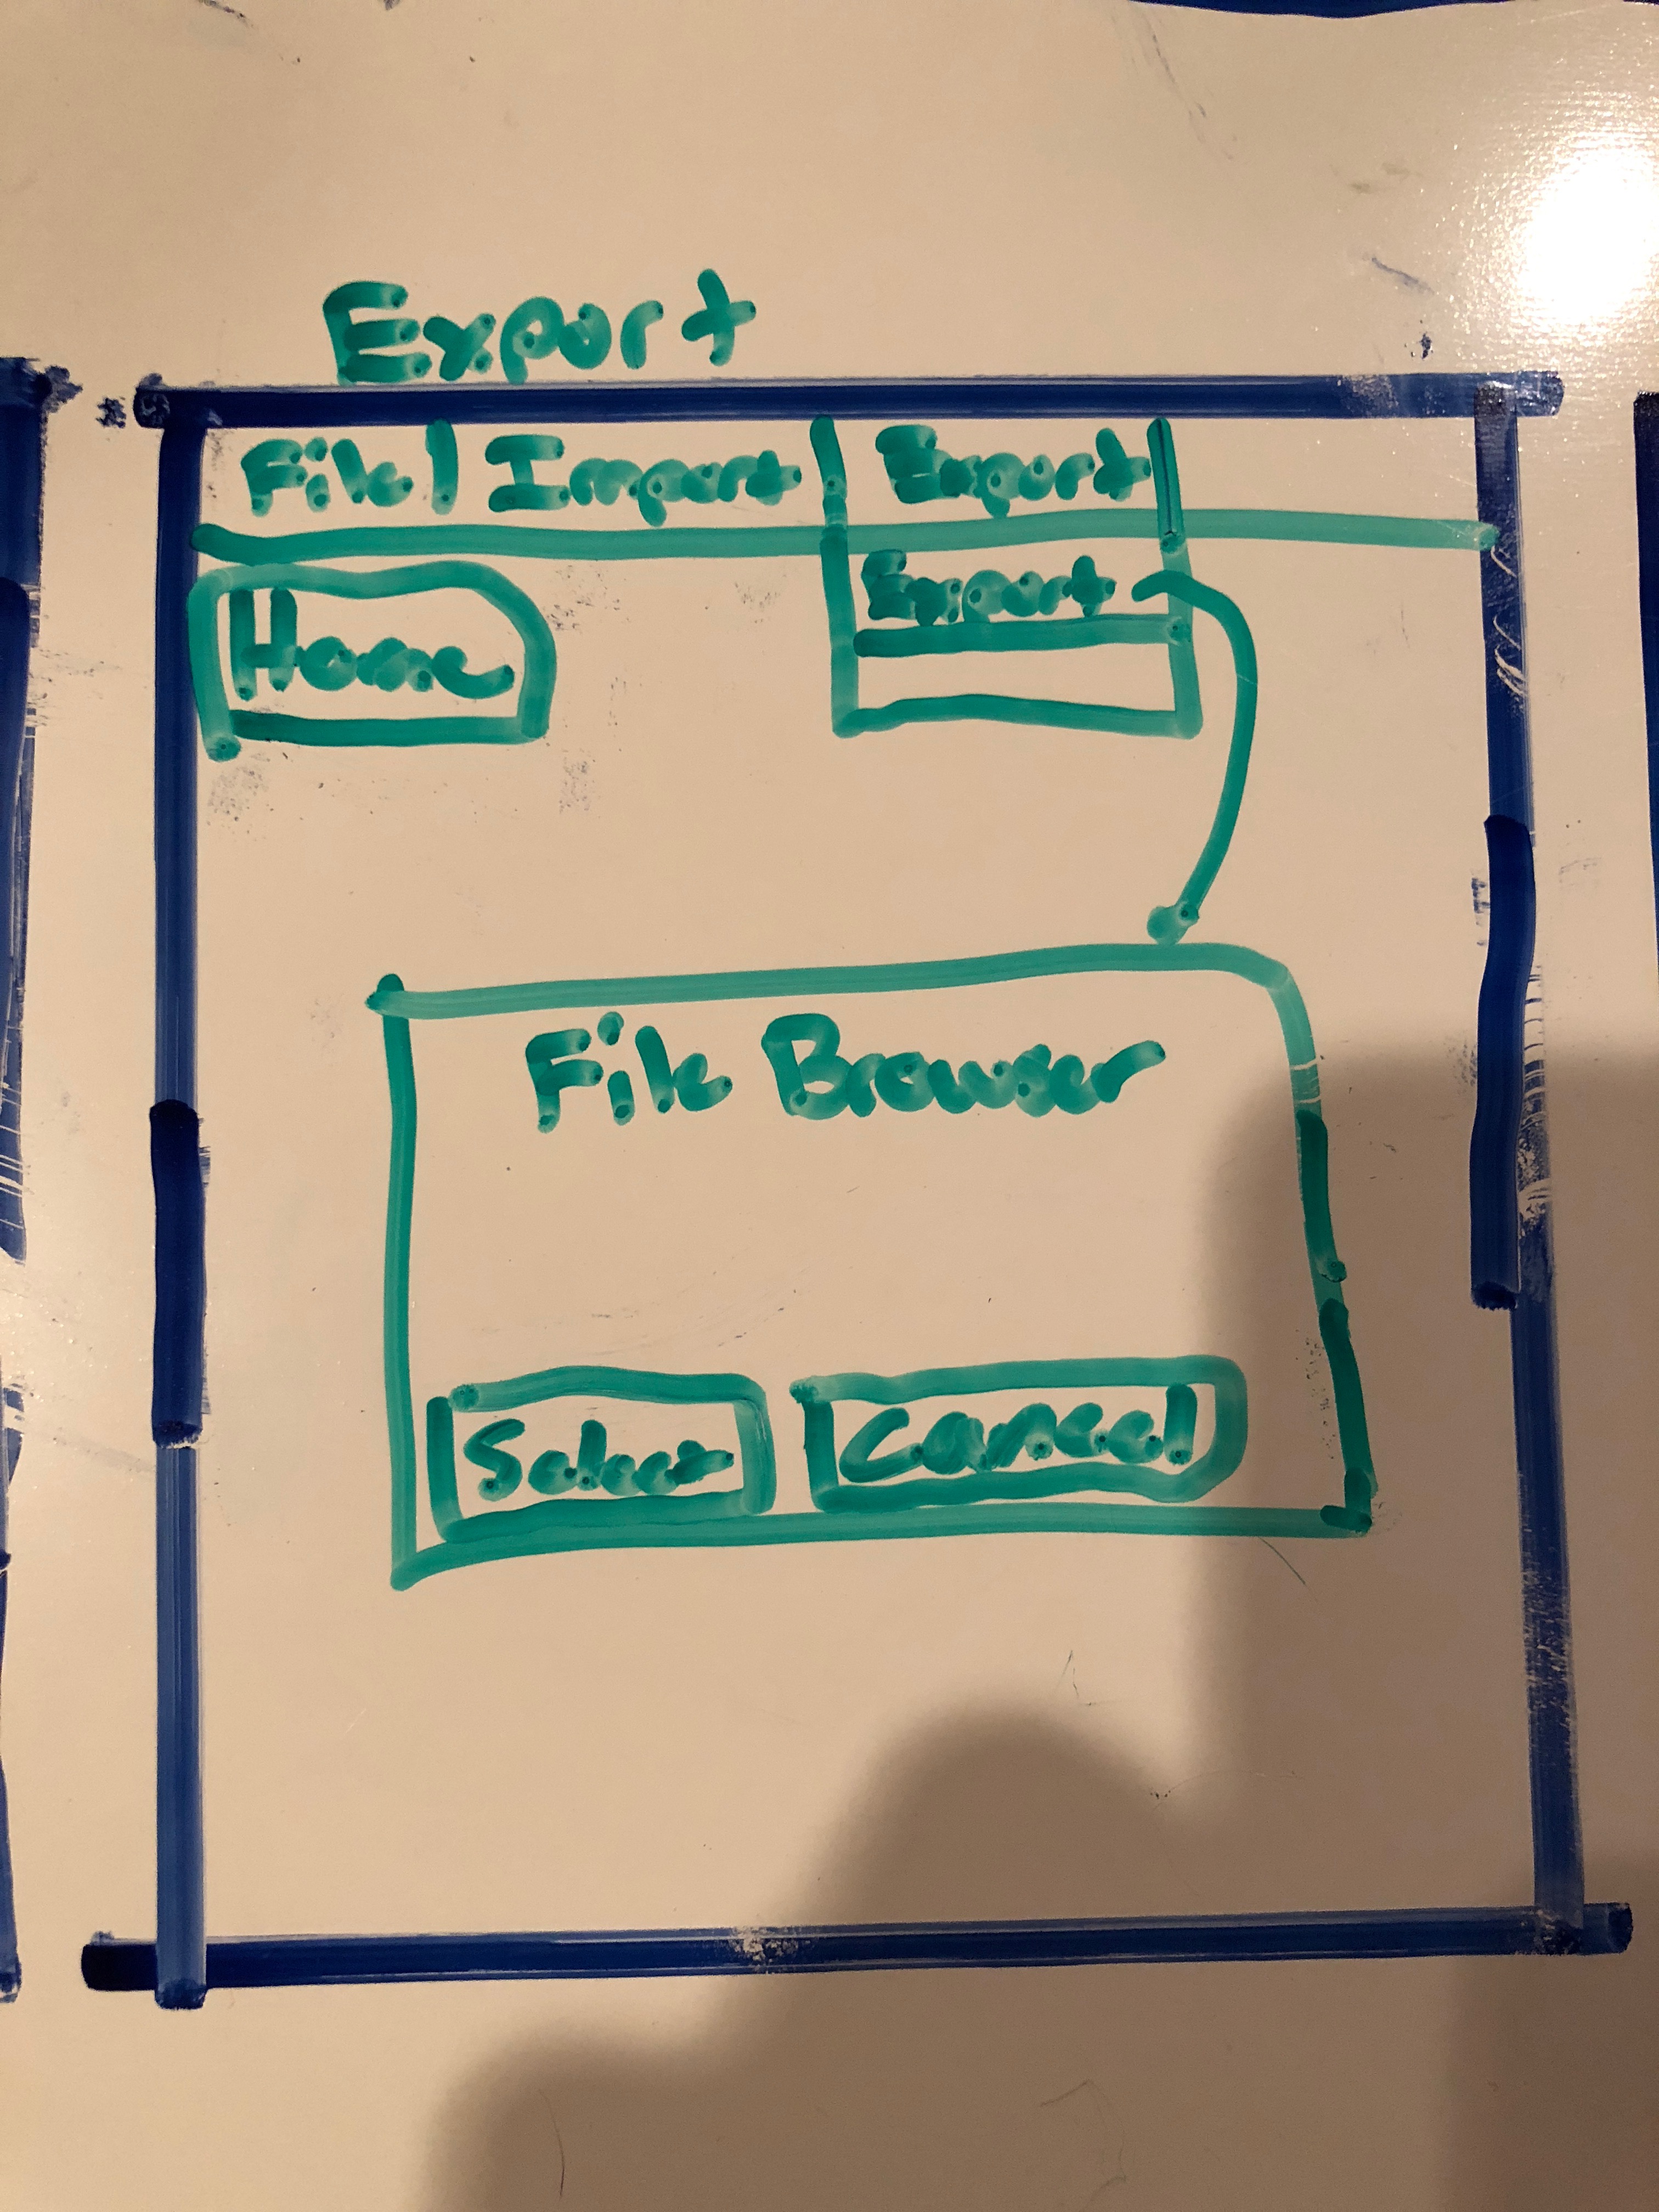 Export
File | Import | Export
Export
Home
File Browser
Select Cancel